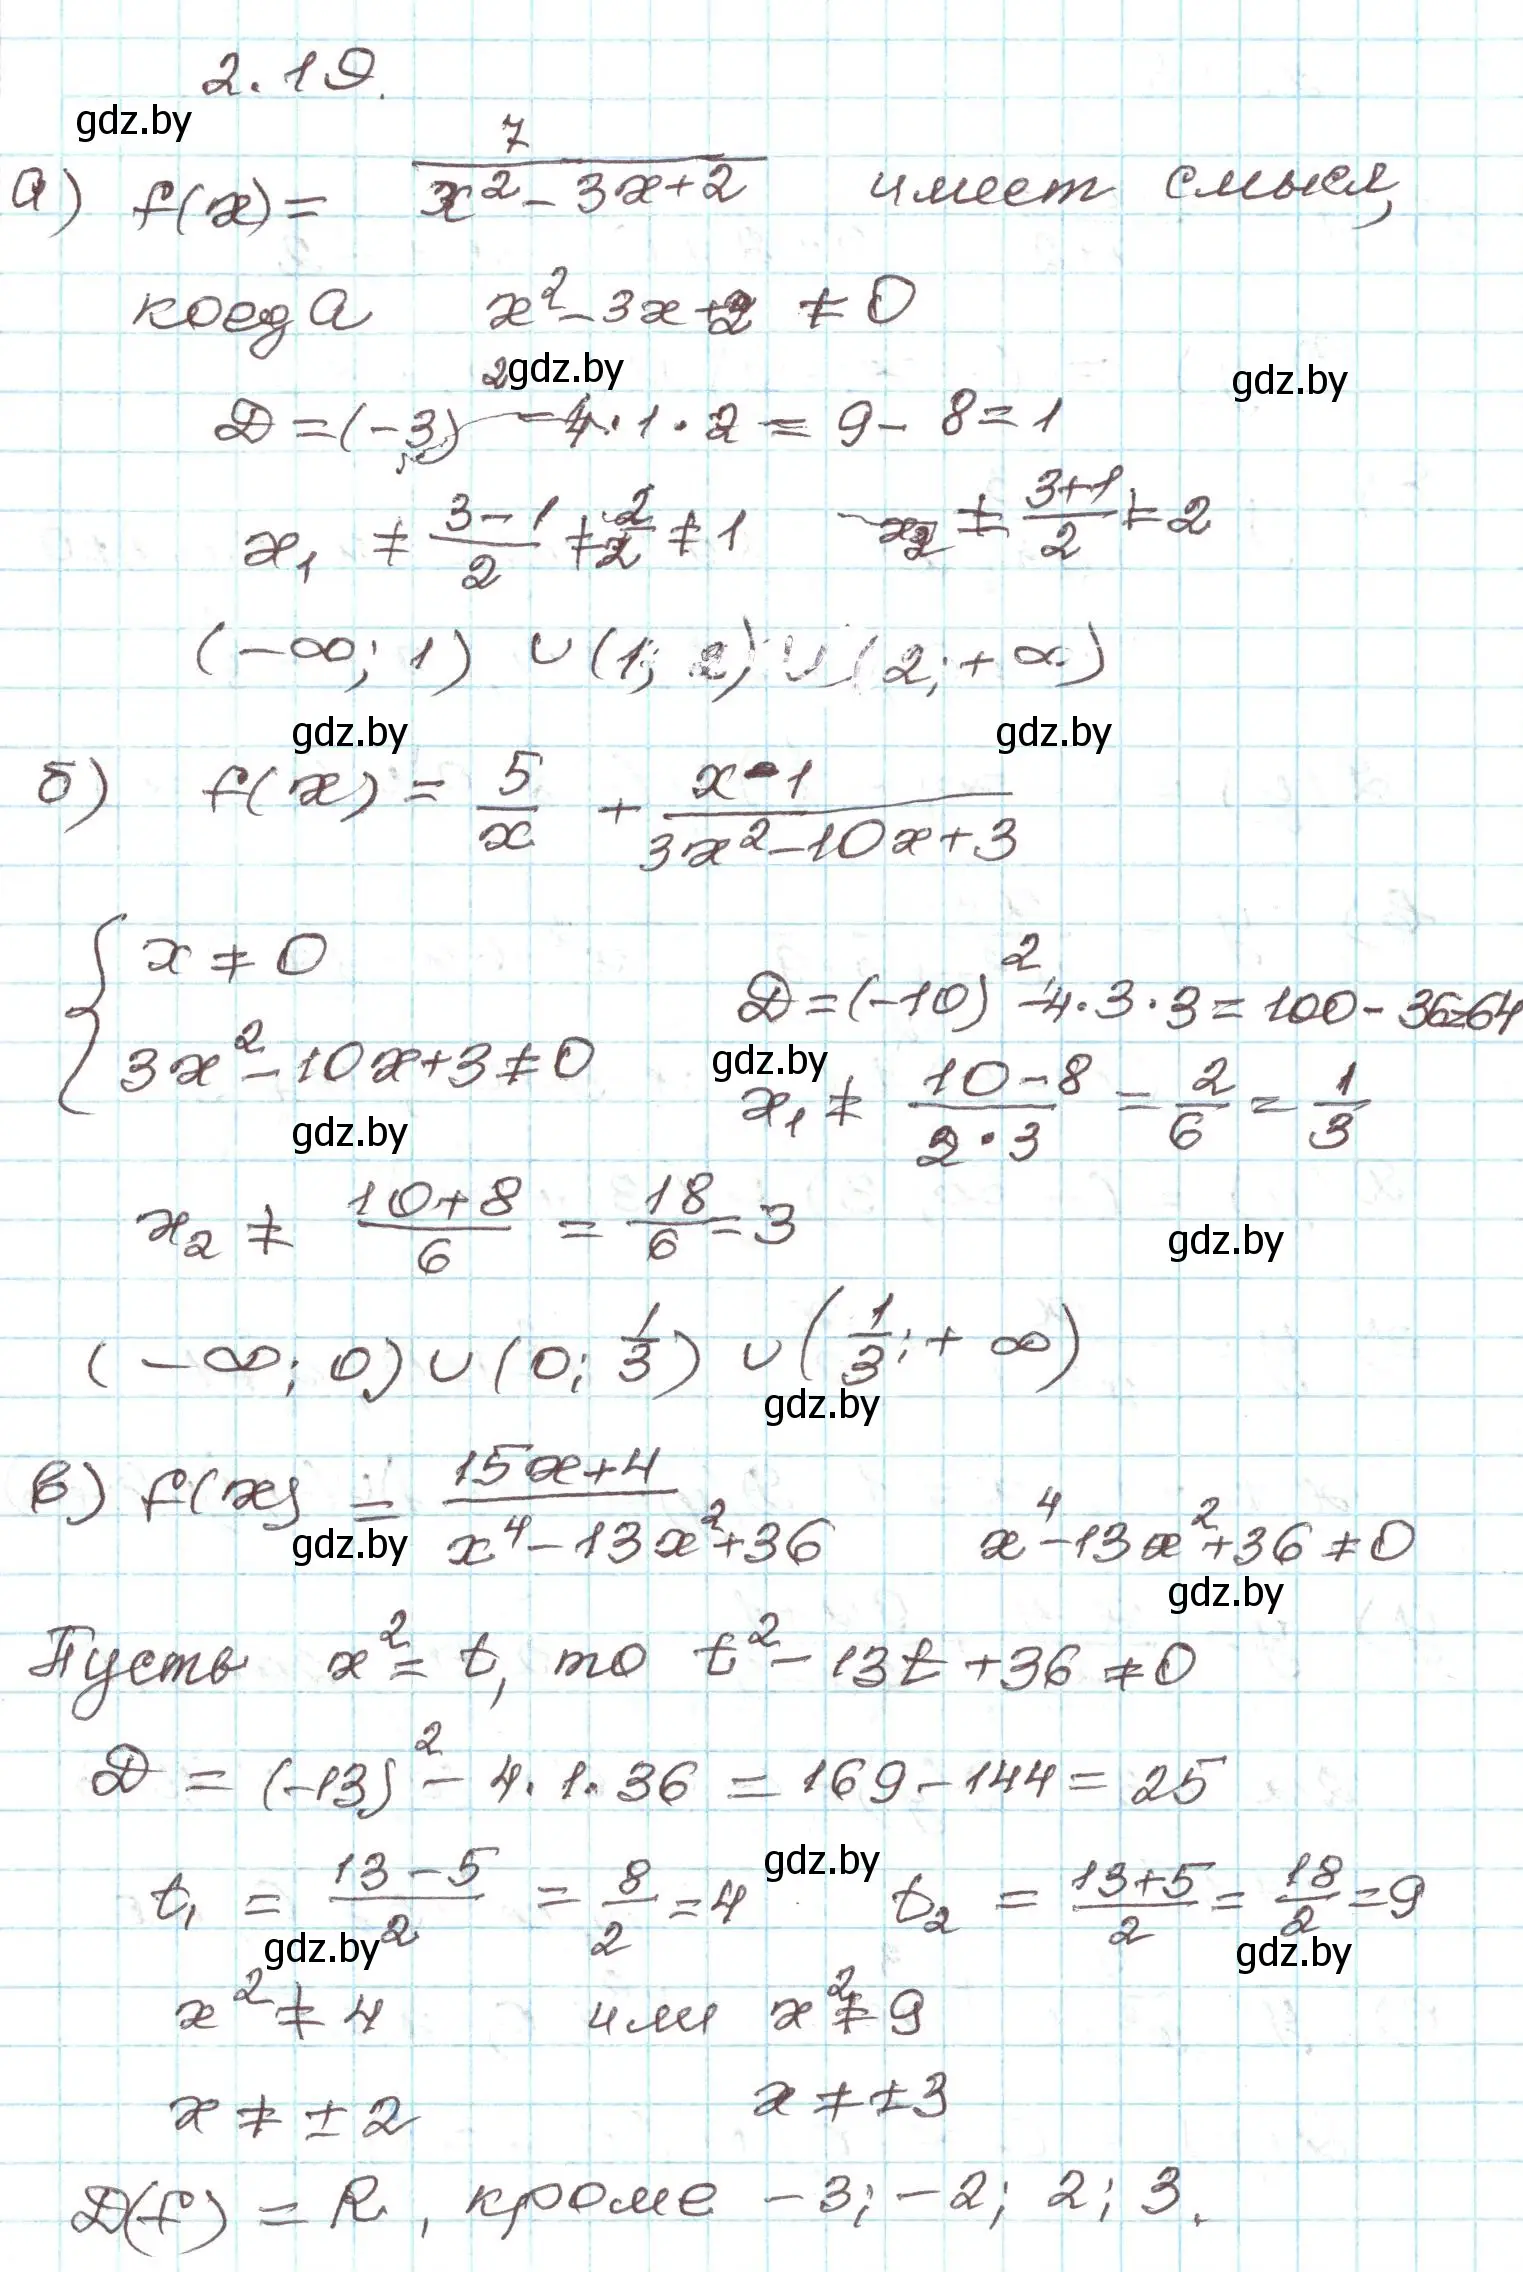 2.19.
gdz.by
а) f(x) = 7/(x² - 3x + 2) имеет смысл,
когда x² - 3x + 2 ≠ 0
gdz.by gdz.by
D = (-3)² - 4·1·2 = 9 - 8 = 1
x₁ ≠ (3-1)/2 ≠ 2/2 ≠ 1 x₂ ≠ (3+1)/2 ≠ 2
(-∞; 1) ∪ (1; 2) ∪ (2; +∞)
gdz.by gdz.by
б) f(x) = 5/x + (x-1)/(3x² - 10x + 3)
{ x ≠ 0 D = (-10)² - 4·3·3 = 100 - 36 = 64
3x² - 10x + 3 ≠ 0 gdz.by
gdz.by x₁ ≠ (10-8)/(2·3) = 2/6 = 1/3
x₂ ≠ (10+8)/6 = 18/6 = 3 gdz.by
(-∞; 0) ∪ (0; 1/3) ∪ (1/3; +∞)
gdz.by
в) f(x) = (15x+4)/(x⁴ - 13x² + 36) x⁴ - 13x² + 36 ≠ 0
gdz.by gdz.by
Пусть x² = t, то t² - 13t + 36 ≠ 0
D = (-13)² - 4·1·36 = 169 - 144 = 25
gdz.by
t₁ = (13-5)/2 = 8/2 = 4 t₂ = (13+5)/2 = 18/2 = 9
gdz.by gdz.by
x² ≠ 4 или x² ≠ 9
x ≠ ±2 x ≠ ±3
D(f) = R, кроме -3; -2; 2; 3.